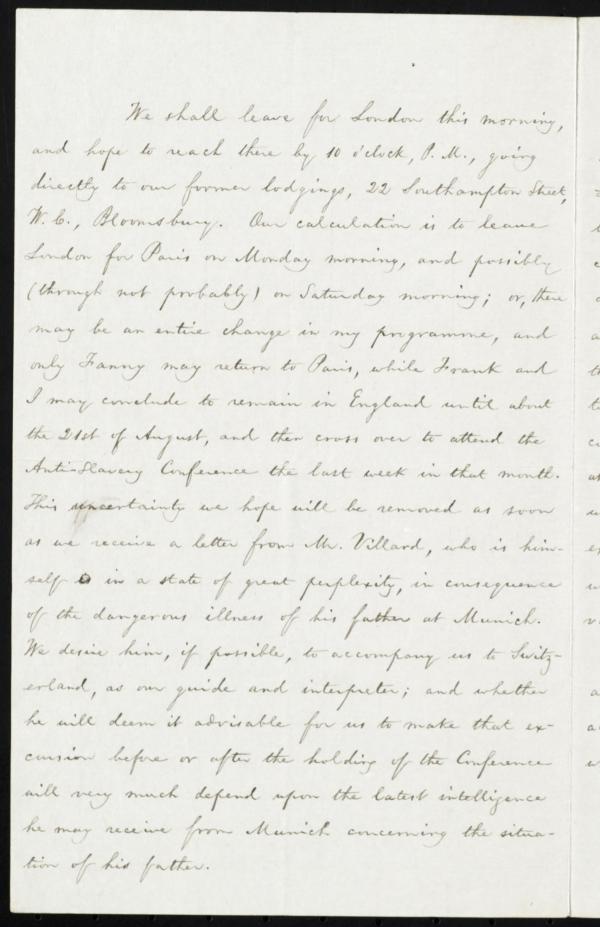 We shall leave for London this morning,
and hope to reach there by 10 o'clock, P. M., going
directly to our former lodgings, 22 Southampton Street,
W. C., Bloomsbury. Our calculation is to leave
London for Paris on Monday morning, and possibly
(through not probably) on Saturday morning; or, there
may be an entire change in my programme, and
only Fanny may return to Paris, while Frank and
I may conclude to remain in England until about
the 21st of August, and then cross over to attend the
Anti-Slavery Conference the last week in that month.
This uncertainty we hope will be removed as soon
as we receive a letter from Mr. Villard, who is him-
self in a state of great perplexity, in consequence
of the dangerous illness of his father at Munich.
We desire him, if possible, to accompany us to Switz-
erland, as our guide and interpreter; and whether
he will deem it advisable for us to make that ex-
cursion before or after the holding of the Conference
will very much depend upon the latest intelligence
he may receive from Munich concerning the situa-
tion of his father.